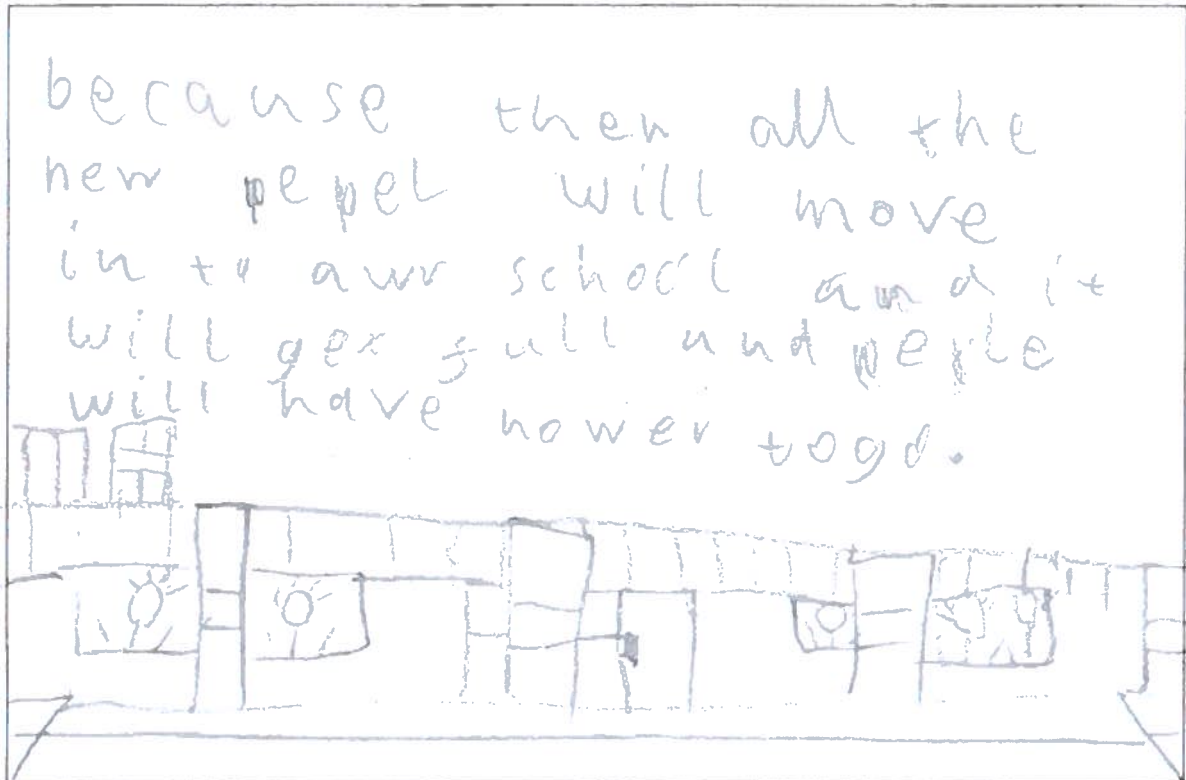 because then all the
new pepel will move
in to awr school and it
will get full and peple
will have nower togo.